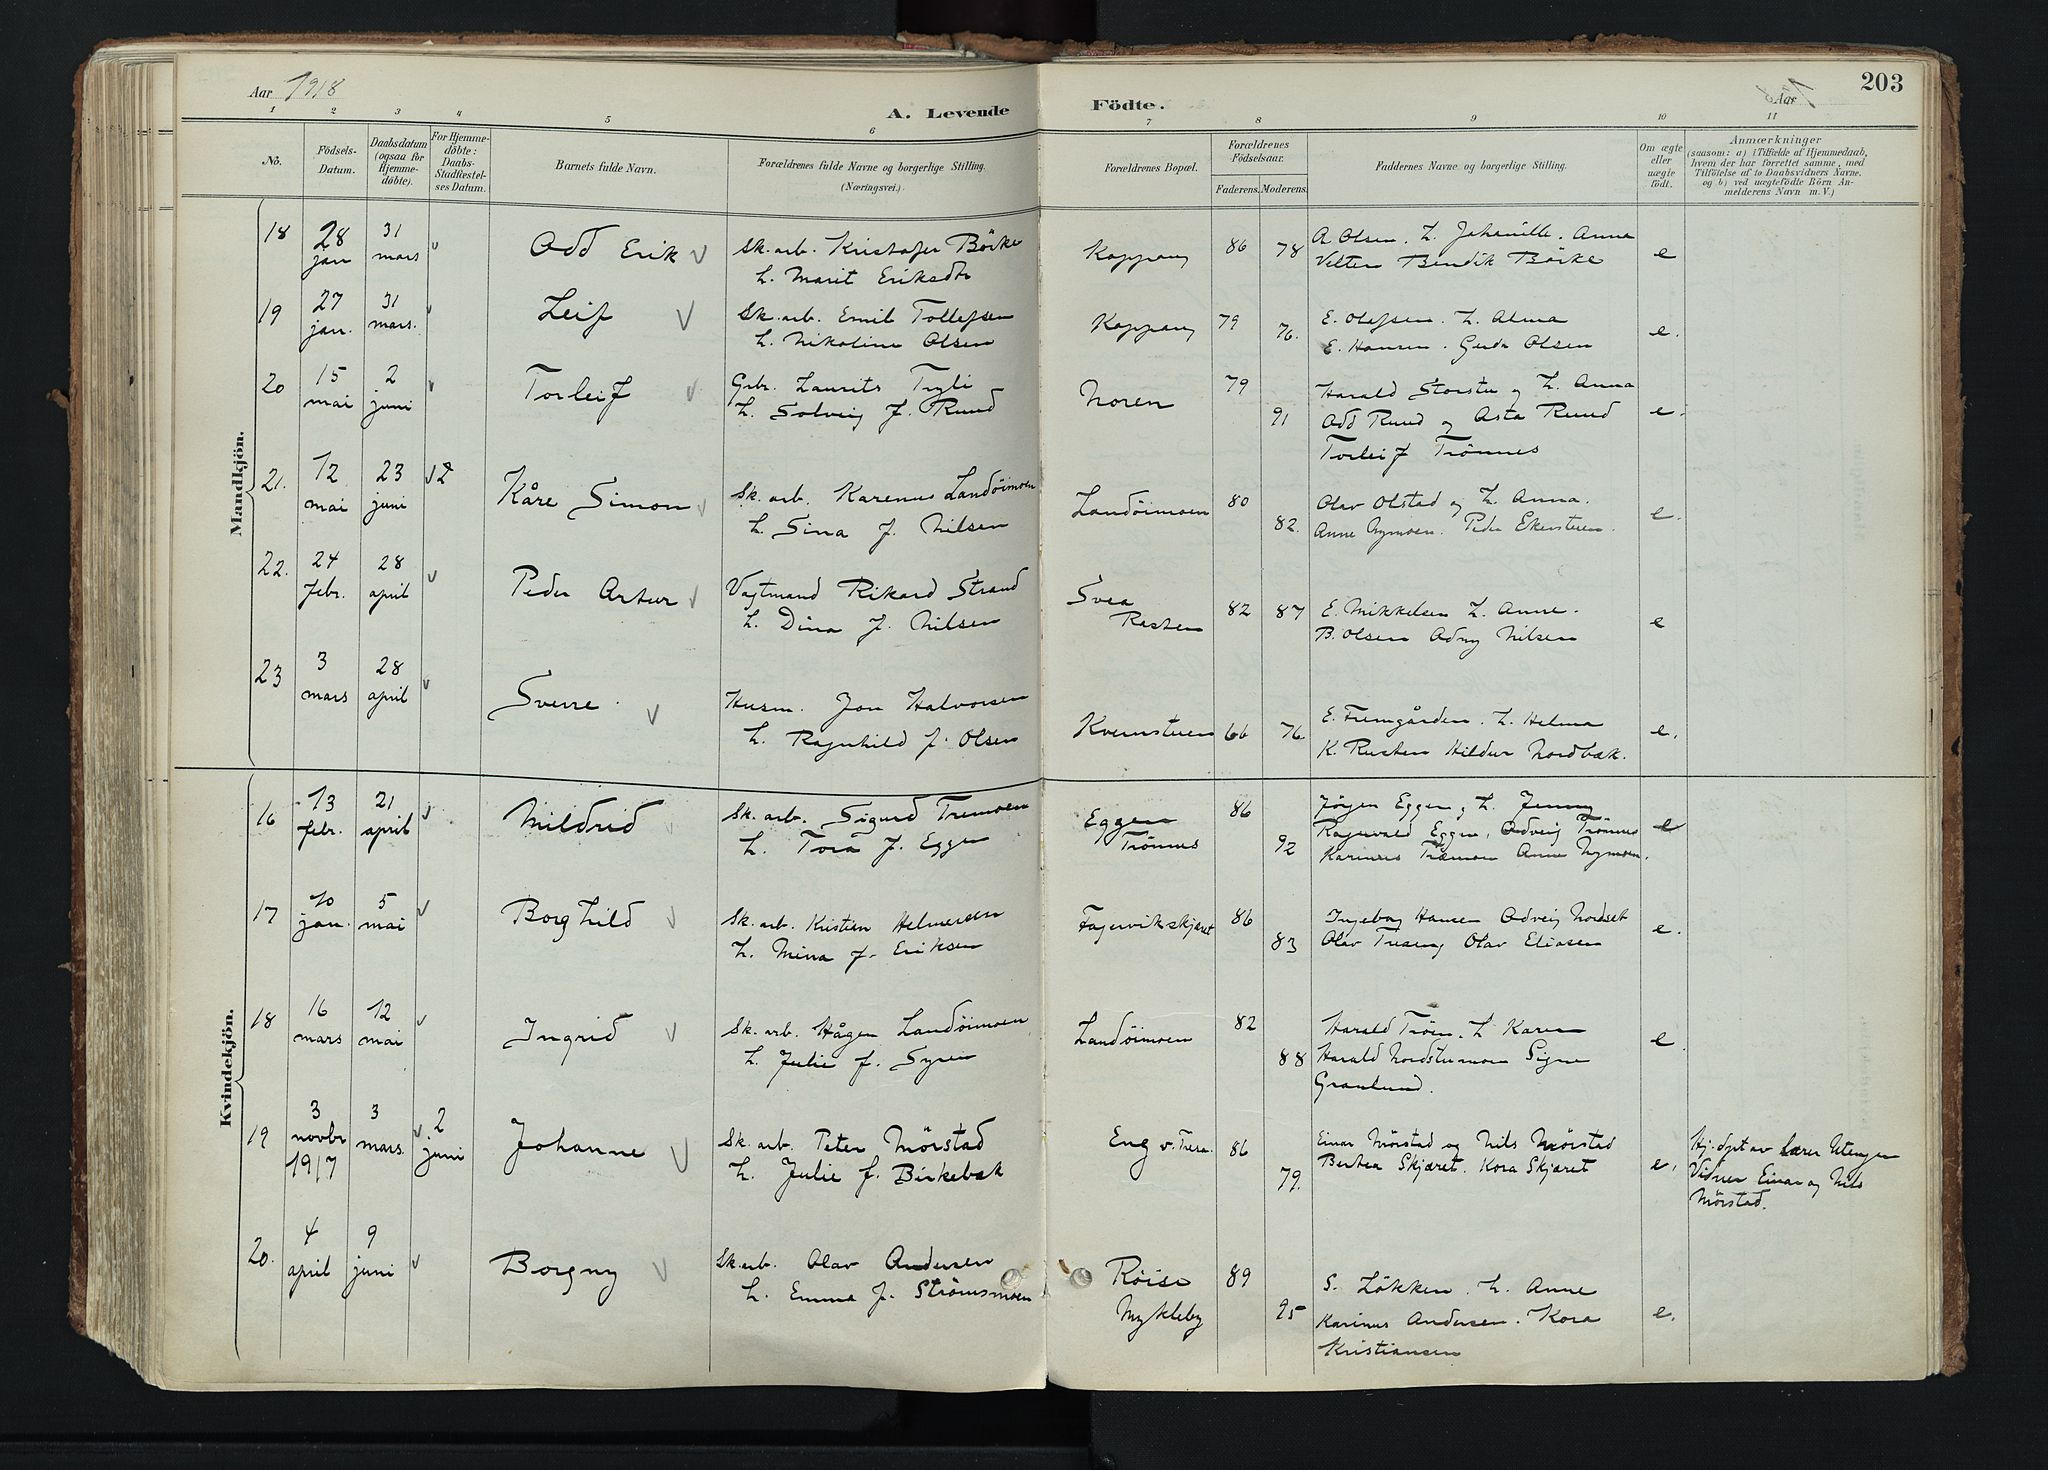 Aar 1918
A. Levende Födte.
Aar
203
1 2 3 4 5 6 7 8 9 10 11
No.
Födsels-Datum.
Daabsdatum (ogsaa for Hjemme-döbte).
For Hjemme-döbte: Daabs-Stadfæstel-ses Datum.
Barnets fulde Navn.
Forældrenes fulde Navne og borgerlige Stilling. (Næringsvei.)
Forældrenes Bopæl.
Forældrenes Födselsaar.
Faderens. Moderens.
Faddernes Navne og borgerlige Stilling.
Om ægte eller uægte födt.
Anmærkninger
(saasom: a) i Tilfælde af Hjemmedaab,
hvem der har forrettet samme, med
Tilföielse af to Daabsvidners Navne,
og b) ved uægtefödte Börn An-
melderens Navn m. V.)
Mandkjön.
18 28 jan 31 mars Odd Erik Sk. arb. Kristofer Börke
h. Marit Eriksdtr
Koppang 86 78 A Olsen. h. Anna
Velten Bendik Börke e
19 27 jan. 31 mars. Leif Sk. arb. Emil Tollefsen
h. Nikoline Olsen
Koppang 79 76. E. Olafsen. h. Alma
E. Hansen. Gerda Olsen e.
20 15 mai 2 juni Torleif Gbr. Laurits Tryli
h. Solveig f. Ruud
Noren 79 91 Harald Storstu og h. Anna
Odd Ruud og Asta Ruud
Torleif Trönnes e.
21. 12 mai 23 juni Kåre Simon Sk. arb. Karenus Landöimoen
h. Sina f. Nilsen
Landöimoen 80 82. Olav Olstad og h. Anna.
Anne Nymoen. Peder Ekersteen. e.
22. 24 febr. 28 april Peder Artur Vagtmand Rikard Strand
h. Dina f. Nilsen
Svea
Rasten 82 87 E. Mikkelsen h. Anne.
B. Olsen Odny Nilsen e
23 3 mars 28 april Sverre. Husm. Jon Halvorsen
h. Ragnhild f. Olsen
Kvernstuen 66 76 E. Fremgården. h. Helma
K. Rusten Hildur Nordbæk. e.
Kvindekjön.
16 13 febr. 21 april Mildrid Sk. arb. Sigurd Tremoen
h. Tora f. Eggen
Eggen
Trönnes 86 92 Jörgen Eggen, h. Jenny
Ragnvald Eggen, Oddveig Trönnes
Karinus Træmoen Anne Nymoen. e
17 10 jan. 5 mai Borghild Sk. arb. Kristian Helmersen
h. Mina f. Eriksen
Fagervikskjæret 86 83 Ingeborg Hansen Oddveig Nordset
Olav Treseng Olav Eliasen e.
18 16 mars 12 mai Ingrid Sk. arb. Hågen Landöimoen
h. Julie f. Syren
Landöimoen 82 88 Harald Tröen. h. Karen
Harald Nordstumoen Signe
Granlund. e.
19 3 novbr 1917 3 mars. 2 juni Johanne Sk. arb. Peter Mörstad
h. Julie f. Birkebæk
Eng v. Tresa. 86 79. Einar Mörstad og Nils Mörstad
Bertea Skjæret. Kora Skjæret e.
Hj. döpt av lærer Utengen
Vidner Einar og Nils
Mörstad.
20. 4 april 9 juni Borgny Sk. arb. Olav Andersen
h. Emma f. Strömsmoen
Röise
Mykleby 89 95 S. Lökken. h. Anne
Karinus Andersen. Kora
Kristiansen e.